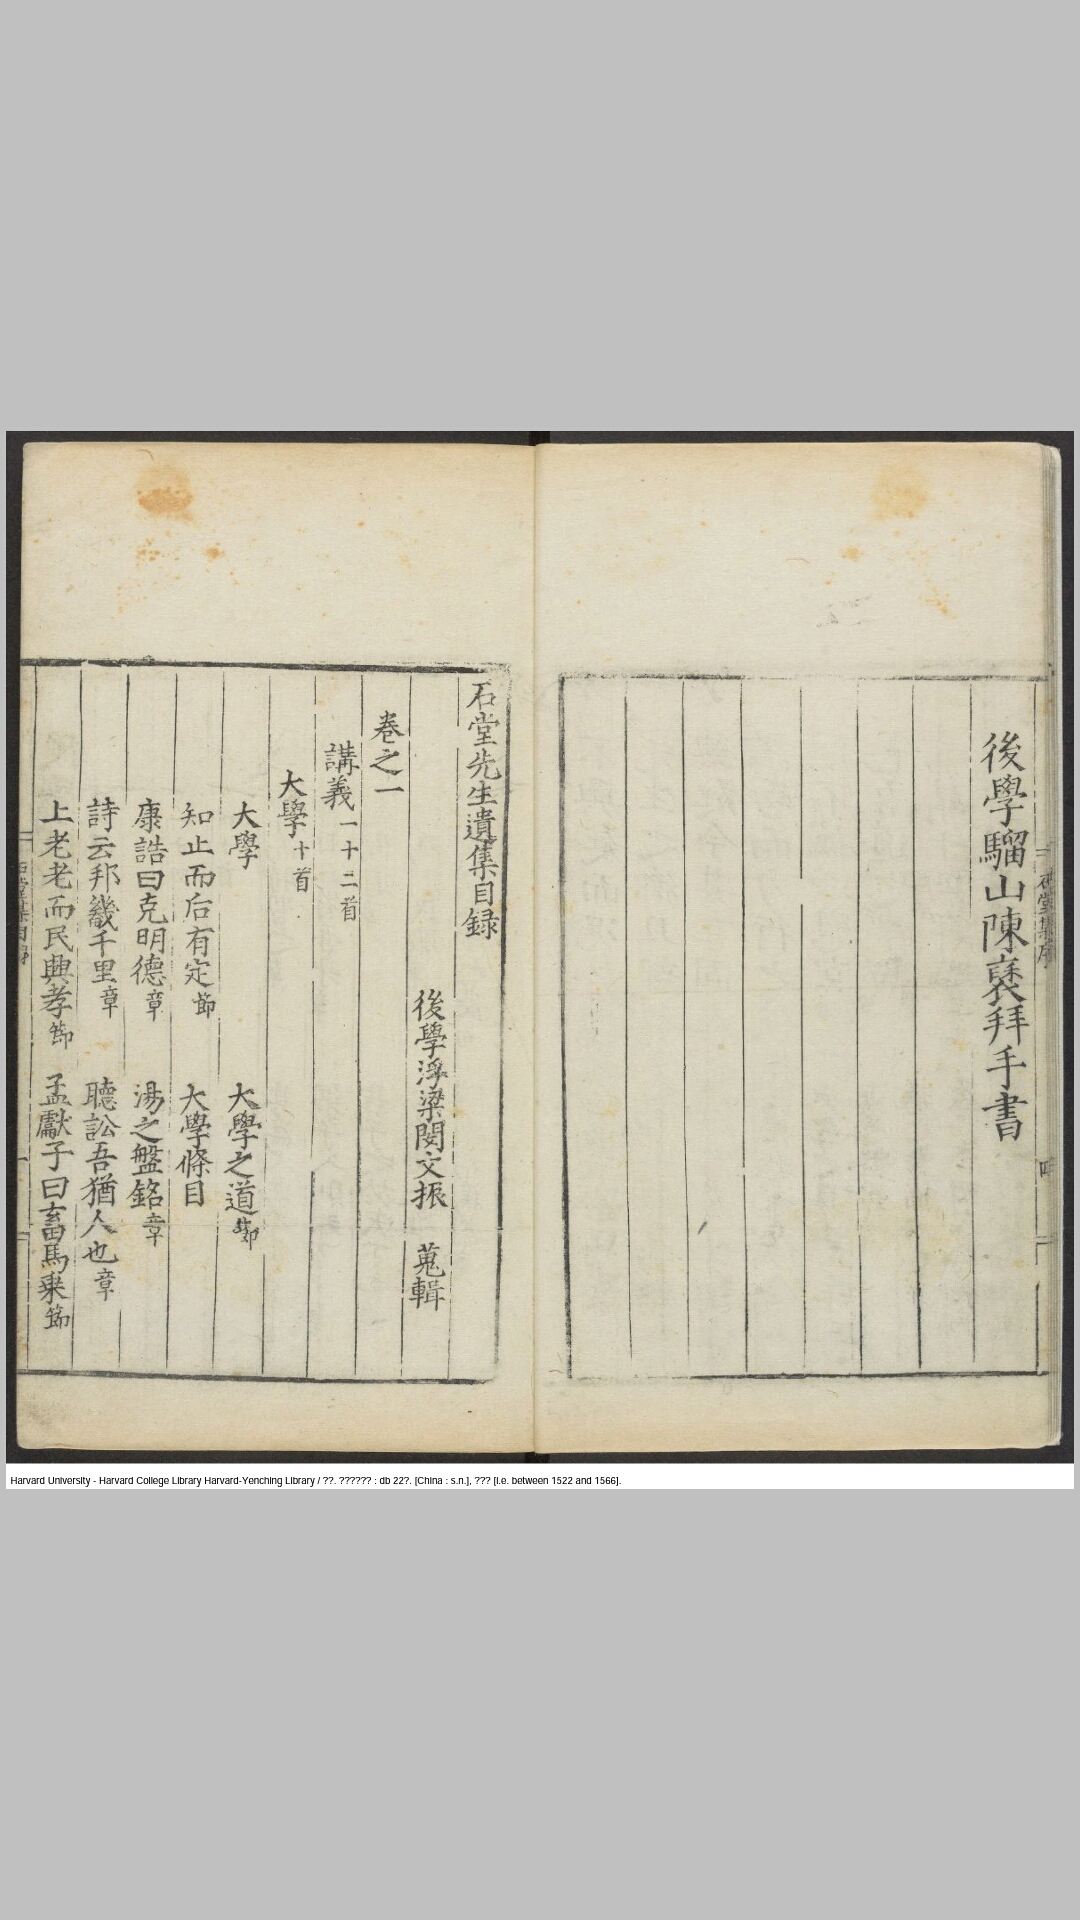 後學騮山陳褎拜手書
石堂先生遺集目録
後學浮梁閔文振 蒐輯
卷之一
講義一十二首
大學十首
大學 大學之道節
知止而后有定節 大學條目
康誥曰克明德章 湯之盤銘章
詩云邦畿千里章 聽訟吾猶人也章
上老老而民興孝節 孟獻子曰畜馬乗節
Harvard University - Harvard College Library Harvard-Yenching Library / ??. ?????? : db 22?. [China : s.n.], ??? [i.e. between 1522 and 1566].